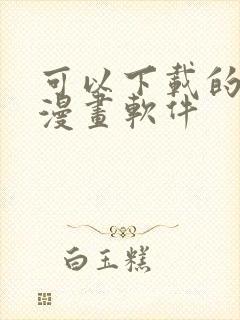 可以下載的
漫畫軟件
白玉糕